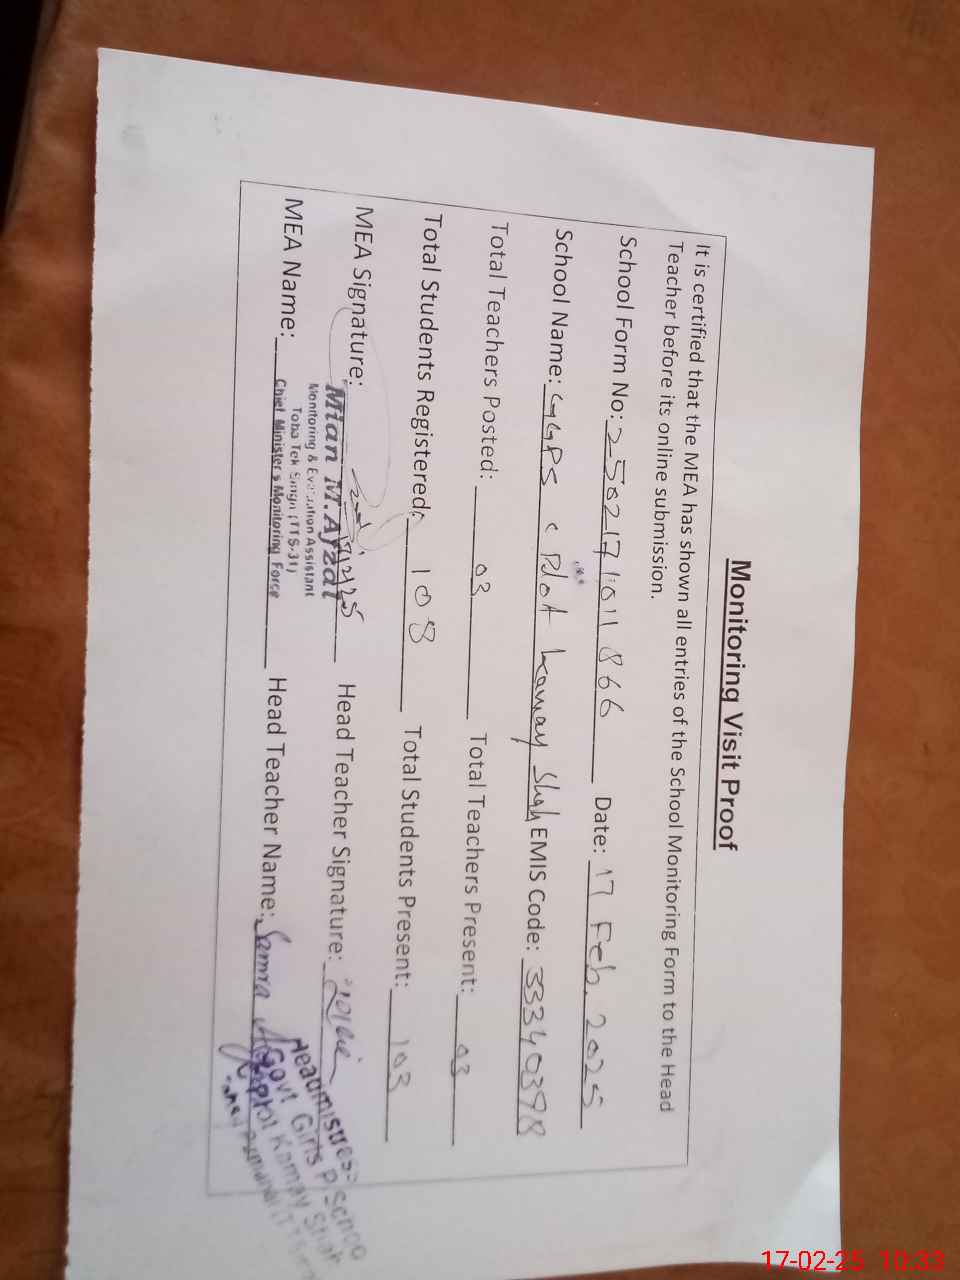 Monitoring Visit Proof
It is certified that the MEA has shown all entries of the School Monitoring Form to the Head
Teacher before its online submission.
School Form No: 2502171011866 Date: 17 Feb. 2025
School Name: GGPS, Plot Kamay Shah EMIS Code: 33340398
Total Teachers Posted: 03 Total Teachers Present: 03
Total Students Registered: 108 Total Students Present: 103
MEA Signature: Head Teacher Signature:
Mian M.Afzal
Monitoring & Evaluation Assistant
Toba Tek Singh (TTS-31)
Chief Minister's Monitoring Force
MEA Name: Head Teacher Name: Samra
Headmistress
Govt Girls P/School
Kamay Shah
17-02-25 10:33